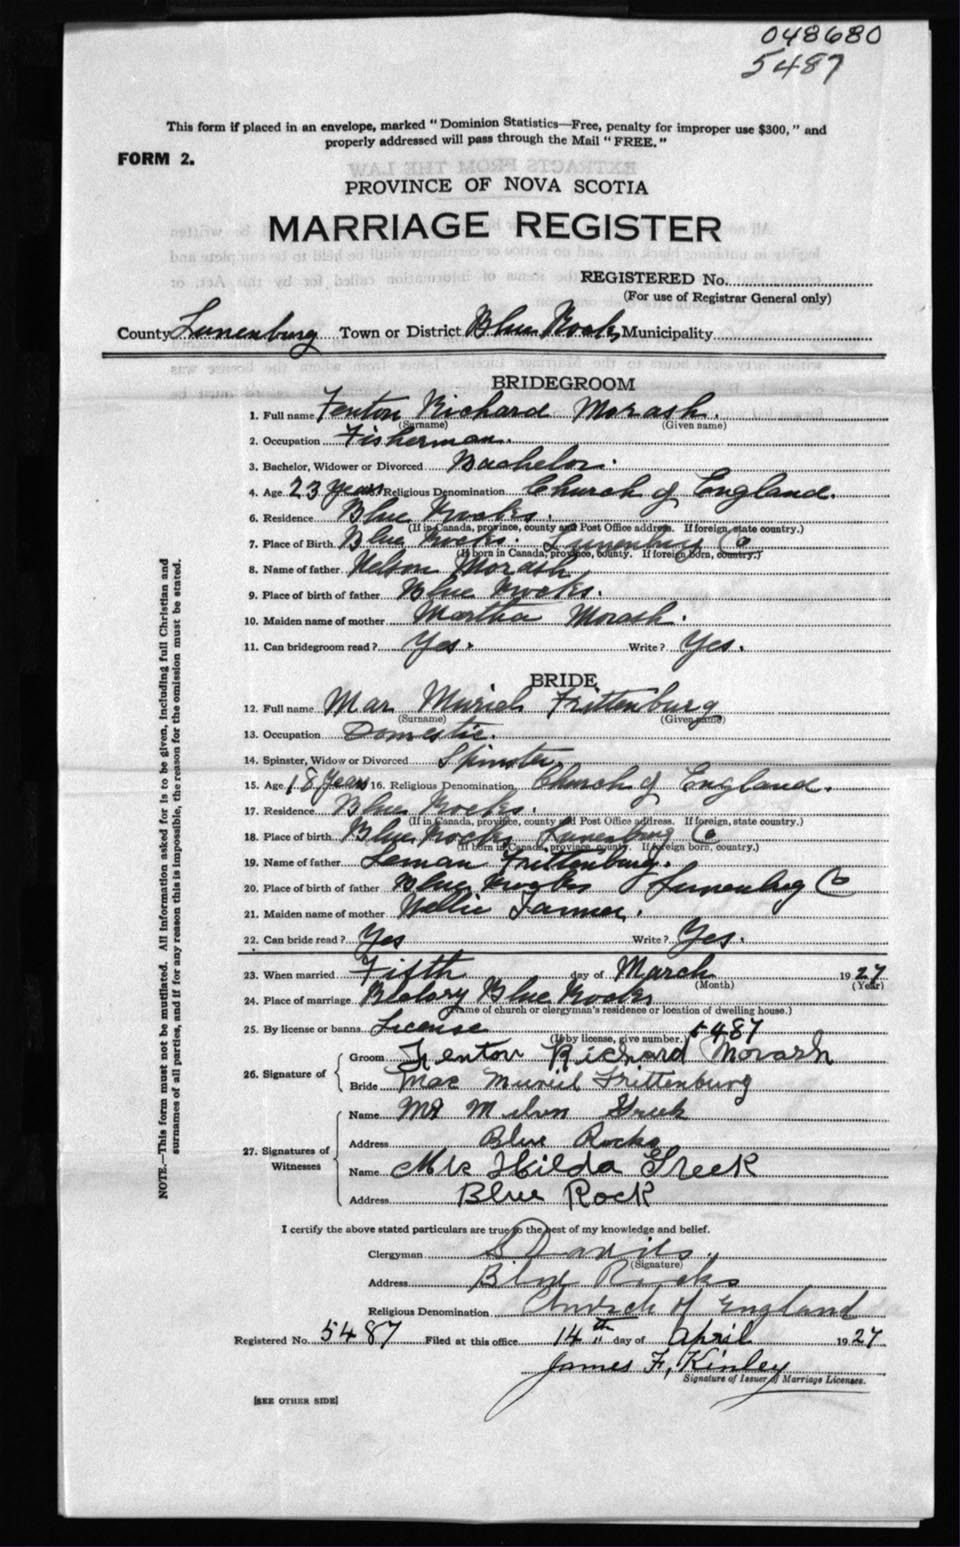 048680
5487
This form if placed in an envelope, marked "Dominion Statistics—Free, penalty for improper use $300," and
properly addressed will pass through the Mail "FREE."
FORM 2.
EXTRACTS FROM THE LAW
PROVINCE OF NOVA SCOTIA
MARRIAGE REGISTER
REGISTERED No.
(For use of Registrar General only)
County Lunenburg Town or District Blue Rocks Municipality
BRIDEGROOM
1. Full name Fenton Richard Morash.
(Surname) (Given name)
2. Occupation Fisherman.
3. Bachelor, Widower or Divorced Bachelor.
4. Age 23 Years Religious Denomination Church of England.
6. Residence Blue Rocks.
(If in Canada, province, county and Post Office address. If foreign, state country.)
7. Place of Birth Blue Rocks. Lunenburg Co
(If born in Canada, province, county. If foreign born, country.)
8. Name of father Nelson Morash
9. Place of birth of father Blue Rocks.
10. Maiden name of mother Martha Morash.
11. Can bridegroom read? Yes. Write? Yes.
BRIDE
12. Full name Mae Muriel Frittenburg
(Surname) (Given name)
13. Occupation Domestic.
14. Spinster, Widow or Divorced Spinster
15. Age 18 Years 16. Religious Denomination Church of England.
17. Residence Blue Rocks.
(If in Canada, province, county and Post Office address. If foreign, state country.)
18. Place of birth Blue Rocks Lunenburg Co
(If born in Canada, province, county. If foreign born, country.)
19. Name of father Leman Frittenburg.
20. Place of birth of father Blue Rocks Lunenburg Co
21. Maiden name of mother Nellie Tanner.
22. Can bride read? Yes Write? Yes.
23. When married Fifth day of March 1927
(Month) (Year)
24. Place of marriage Rectory Blue Rocks
(Name of church or clergyman's residence or location of dwelling house.)
25. By license or banns License 5487
(If by license, give number.)
26. Signature of
Groom Fenton Richard Morash
Bride Mae Muriel Frittenburg
27. Signatures of Witnesses
Name Mr Greek
Address Blue Rocks
Name Mrs Hilda Greek
Address Blue Rock
I certify the above stated particulars are true to the best of my knowledge and belief.
Clergyman
(Signature)
Address Blue Rocks
Religious Denomination Church of England
Registered No. 5487 Filed at this office 14th day of April 1927
James F. Kinley
Signature of Issuer of Marriage Licenses.
[SEE OTHER SIDE]
NOTE.—This form must not be mutilated. All information asked for is to be given, including full Christian and
surnames of all parties, and if for any reason this is impossible, the reason for the omission must be stated.